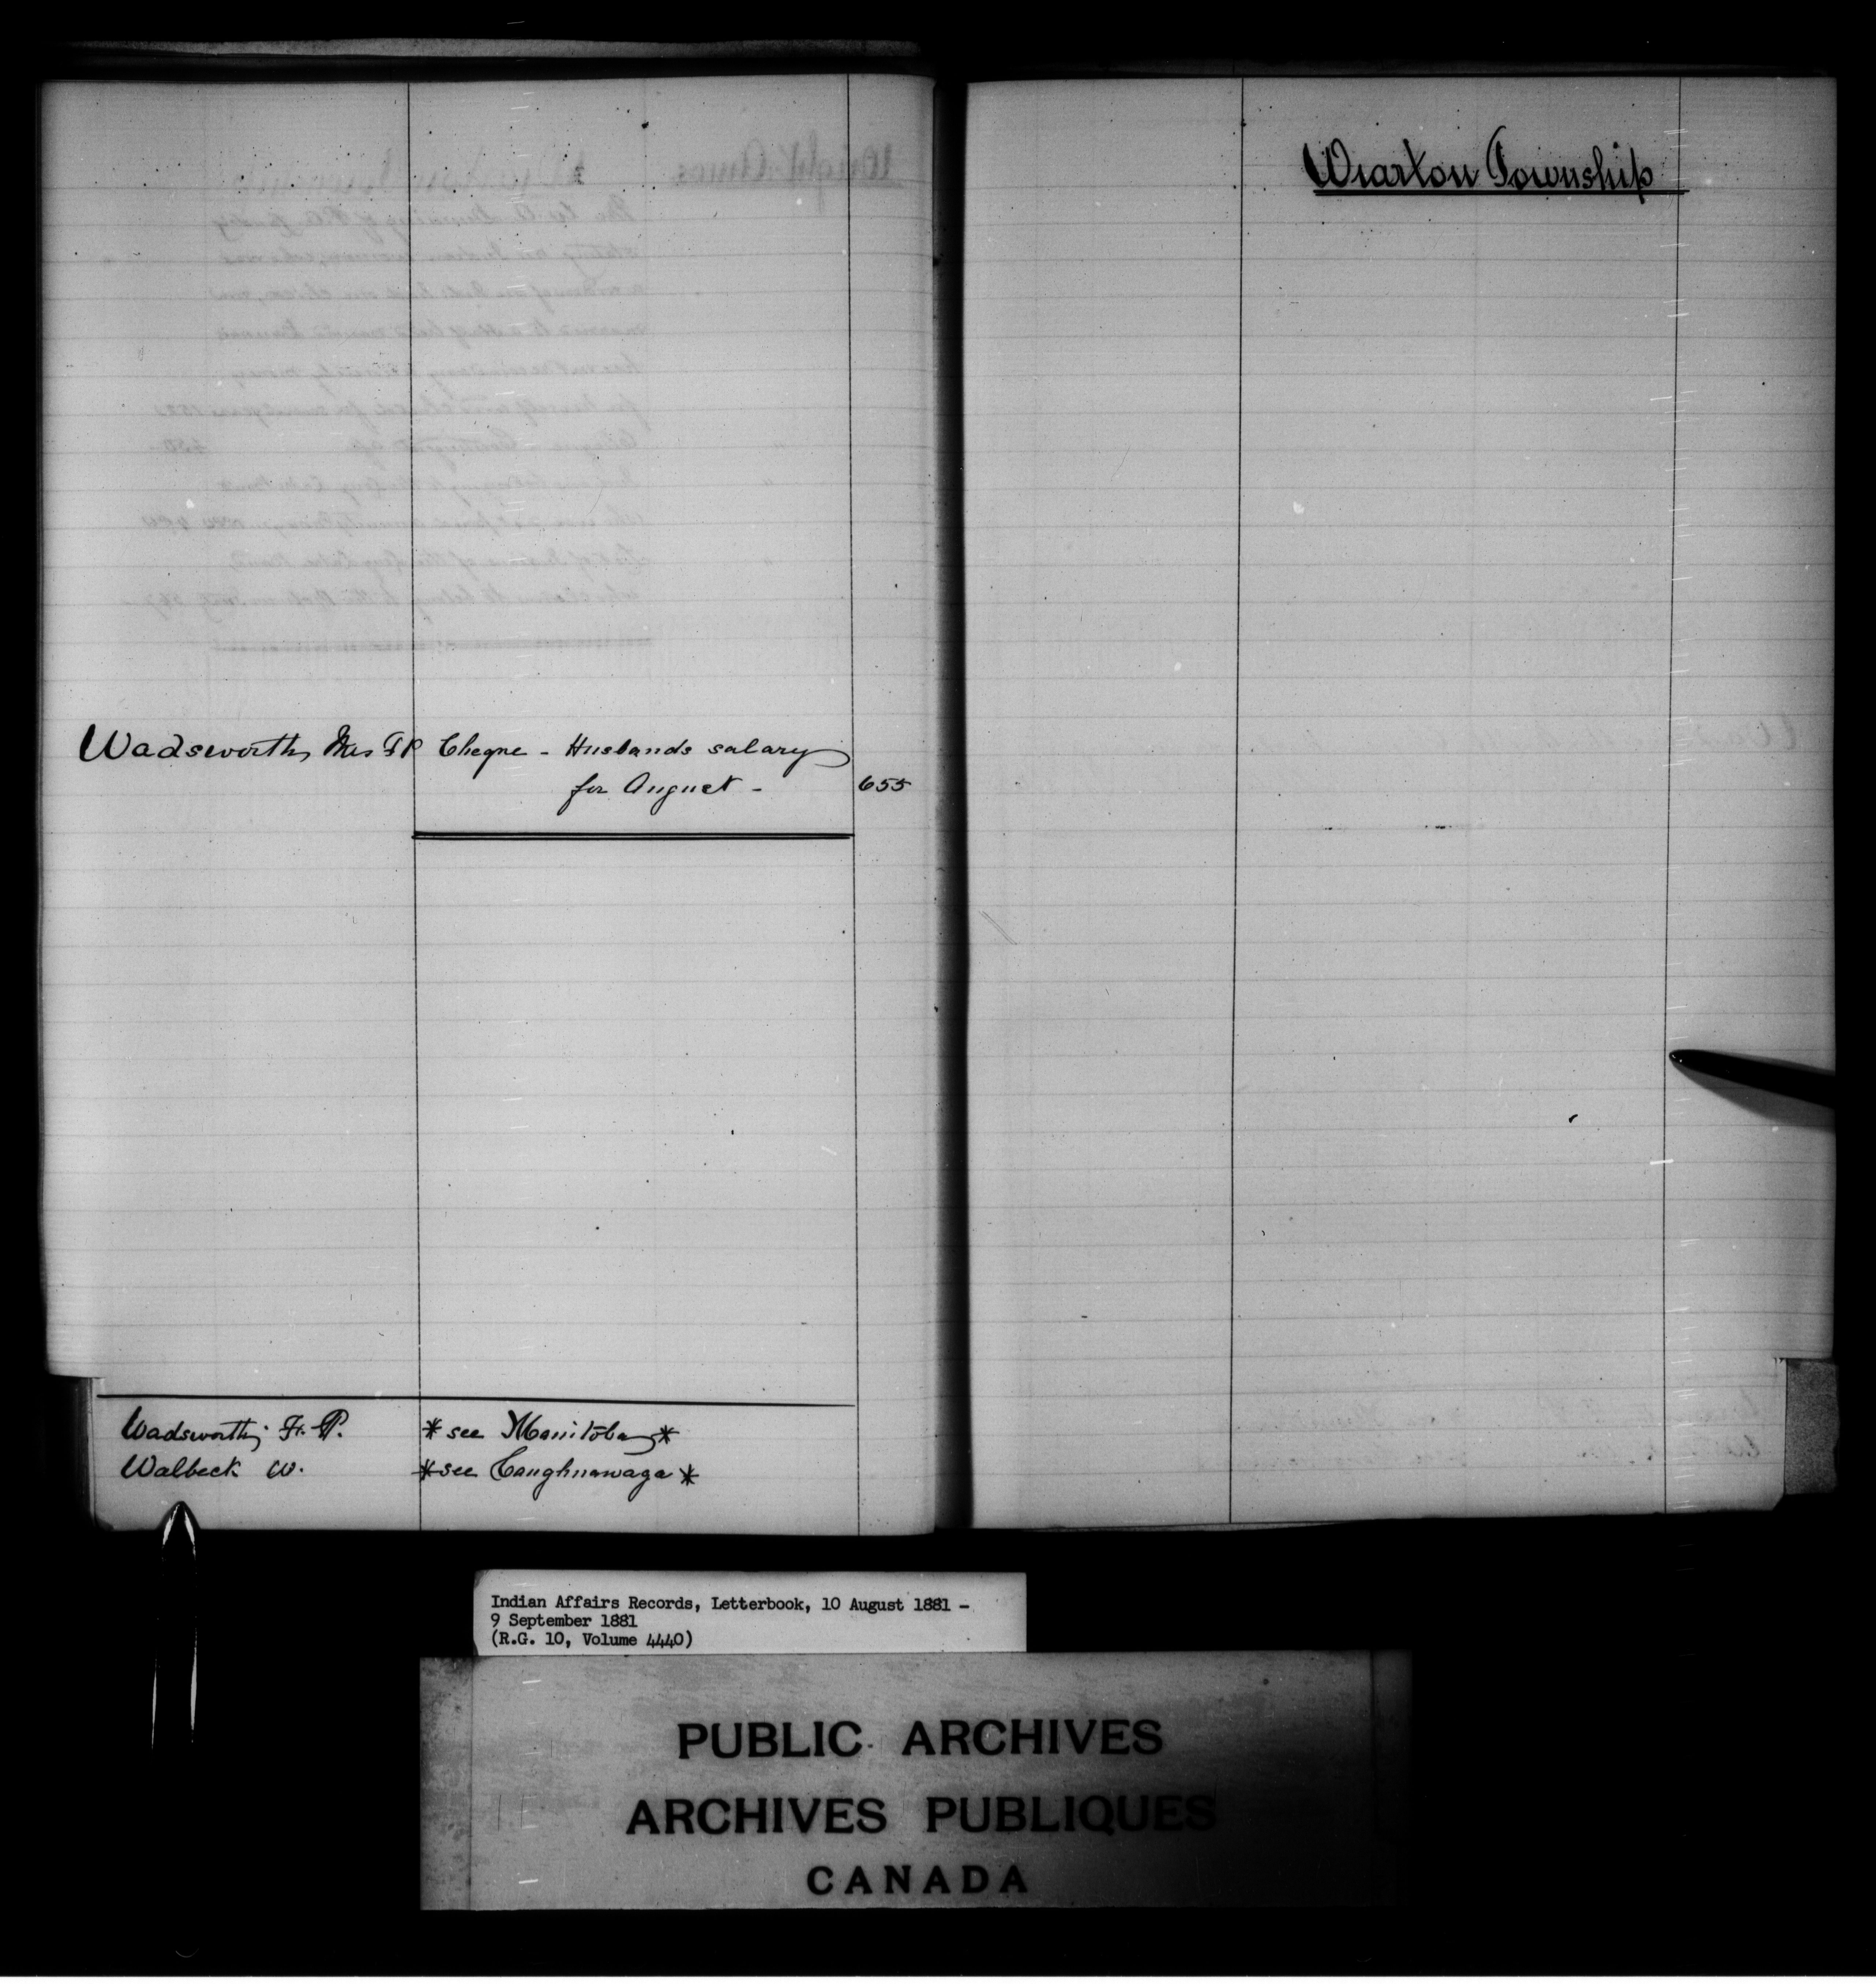 Wadsworth, Mrs F P Cheque - Husbands salary
for August - 655
Wadsworth, F. P. * see Manitoba *
Walbeck W. * see Caughnawaga *
Wiarton Township
Indian Affairs Records, Letterbook, 10 August 1881 -
9 September 1881
(R.G. 10, Volume 4440)
PUBLIC ARCHIVES
ARCHIVES PUBLIQUES
CANADA